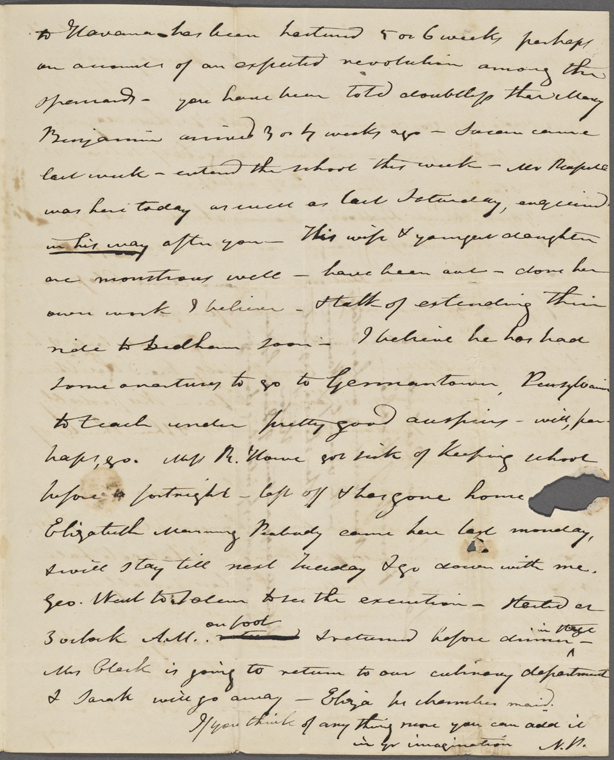 to Havana has been hastened 5 or 6 weeks perhaps
on account of an expected revolution among the
Spaniards - you have been told doubtless that Mary
Benjamin arrived 3 or 4 weeks ago - Susan came
last week - entered the school this week - Mr
was here today as well as last Saturday, enquired
in his way after you - His wife & youngest daughter
are monstrous well - have been out - done her
own work I believe - & talk of extending their
ride to Dedham soon - I believe he has had
some overtures to go to Germantown, Pensylvania
to teach under pretty good auspices - will, per-
haps, go. Miss R. Howe got sick of keeping school
before a fortnight - left off & has gone home
Elizabeth Manning Peabody came here last monday,
& will stay till next Tuesday & go down with me.
Geo. Went to Salem to see the execution - started at
3 oclock A.M. on foot & returned before dinner in stage -
Mrs Clark is going to return to our culinary department
& Sarah will go away - Eliza is chamber maid.
If you think of any thing more you can add it
in yr imagination N.P.